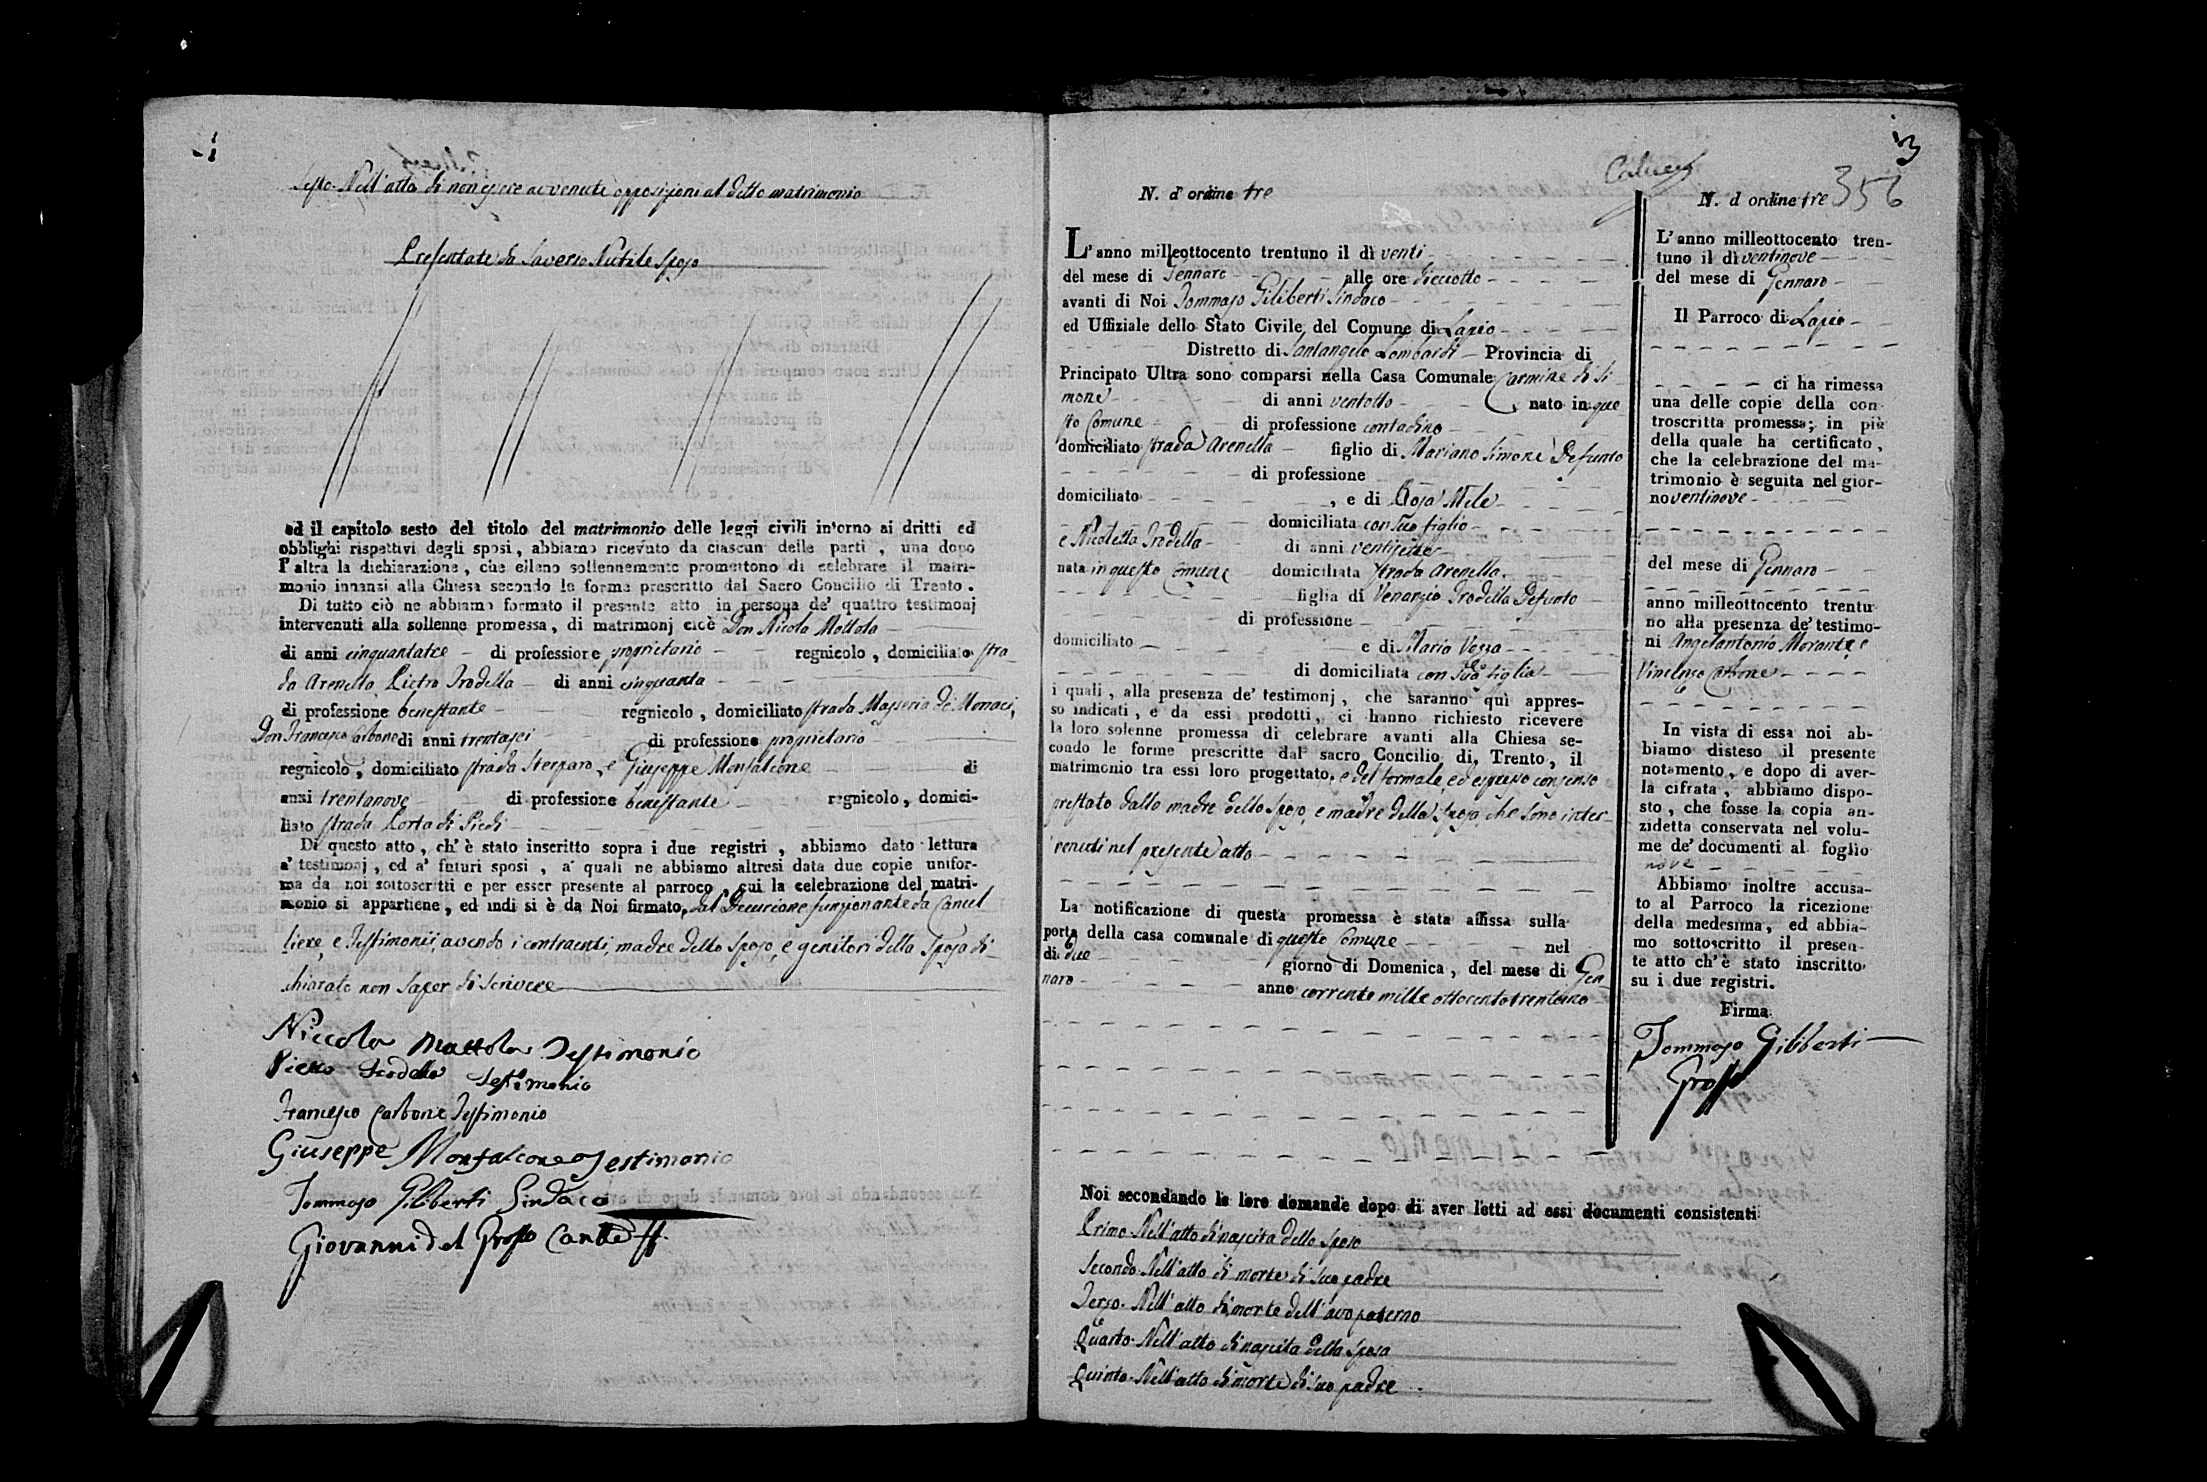 Sesto. Nell'atto di non essere avvenute opposizioni al detto matrimonio
Presentate da Saverio Nutile sposo
ed il capitolo sesto del titolo del matrimonio delle leggi civili intorno ai dritti ed
obblighi rispettivi degli sposi, abbiamo ricevuto da ciascun delle parti, una dopo
l'altra la dichiarazione, che elleno sollennemente promettono di celebrare il matri-
monio innanzi alla Chiesa secondo le forme prescritto dal Sacro Concilio di Trento.
Di tutto ciò ne abbiamo formato il presente atto in persona de' quattro testimonj
intervenuti alla sollenne promessa, di matrimonj cioè Don Nicola Mottola
di anni cinquantatre di professione proprietario regnicolo, domiciliato stra-
da Arenella Pietro Trodella di anni cinquanta
di professione benestante regnicolo, domiciliato strada Masseria de Monaci,
Don Francesco Carbone di anni trentasei di professione proprietario
regnicolo, domiciliato strada Sterparo, e Giuseppe Monfalcone di
anni trentanove di professione benestante regnicolo, domici-
liato strada Porta di Piedi
Di questo atto, ch'è stato inscritto sopra i due registri, abbiamo dato lettura
a' testimonj, ed a' futuri sposi, a' quali ne abbiamo altresi data due copie unifor-
ma da noi sottoscritti e per esser presente al parroco, cui la celebrazione del matri-
monio si appartiene, ed indi si è da Noi firmato, dal Decurione funzionante da Cancel
liere, e Testimonii, avendo i contraenti, madre dello sposo, e genitori della sposa di-
chiarato non saper di scrivere
Niccola Mottola Testimonio
Pietro Trodella Testimonio
Francesco Carbone Testimonio
Giuseppe Monfalcone Testimonio
Tommaso Giliberti Sindaco
Giovanni del Grosso
3
356
N. d' ordine tre
L'anno milleottocento trentuno il dì venti
del mese di Gennaro alle ore diciotto
avanti di Noi Tommaso Giliberti Sindaco
ed Uffiziale dello Stato Civile del Comune di Lapio
Distretto di Santangelo Lombardi Provincia di
Principato Ultra sono comparsi nella Casa Comunale Carmine di Si
mone di anni ventotto nato in que
sto Comune di professione contadino
domiciliato strada Arenella figlio di Mariano Simone Defunto
di professione
domiciliato , e di Rosa Mele
domiciliata con suo figlio
e Nicoletta Trodella di anni ventisette
nata in questo Comune domiciliata strada Arenella
figlia di Venanzio Trodella Defunto
di professione
domiciliato e di Maria Vozza
di domiciliata con sua figlia
i quali, alla presenza de' testimonj, che saranno quì appres-
so indicati, e da essi prodotti, ci hanno richiesto ricevere
la loro solenne promessa di celebrare avanti alla Chiesa se-
condo le forme prescritte dal sacro Concilio di Trento, il
matrimonio tra essi loro progettato, e del formale, ed espresso consenso
prestato dalla madre dello sposo, e madre della sposa, che sono inter-
venuti nel presente atto
La notificazione di questa promessa è stata affissa sulla
porta della casa comunale di questo Comune nel
di due giorno di Domenica, del mese di Gen
naro anno corrente mille ottocento trentuno
Noi secondando le loro domande dopo di aver letti ad essi documenti consistenti
Primo. Nell'atto di nascita dello sposo
Secondo. Nell'atto di morte di suo padre
Terzo. Nell'atto di morte dell'avo paterno
Quarto. Nell'atto di nascita della sposa
Quinto. Nell'atto di morte di suo padre
N. d ordine tre
L'anno milleottocento tren-
tuno il dì ventinove
del mese di Gennaro
Il Parroco di Lapio
ci ha rimessa
una delle copie della con
troscritta promessa; in piè
della quale ha certificato,
che la celebrazione del ma-
trimonio è seguita nel gior-
no ventinove
del mese di Gennaro
anno milleottocento trentu
no alla presenza de' testimo-
ni Angelantonio Morante e
Vincenzo Carbone
In vista di essa noi ab-
biamo disteso il presente
notamento, e dopo di aver-
la cifrata, abbiamo dispo-
sto, che fosse la copia an-
zidetta conservata nel volu-
me de' documenti al foglio
nove
Abbiamo inoltre accusa-
to al Parroco la ricezione
della medesima, ed abbia-
mo sottoscritto il presen-
te atto ch'è stato inscritto
su i due registri.
Firma
Tommaso Giliberti
Grosso